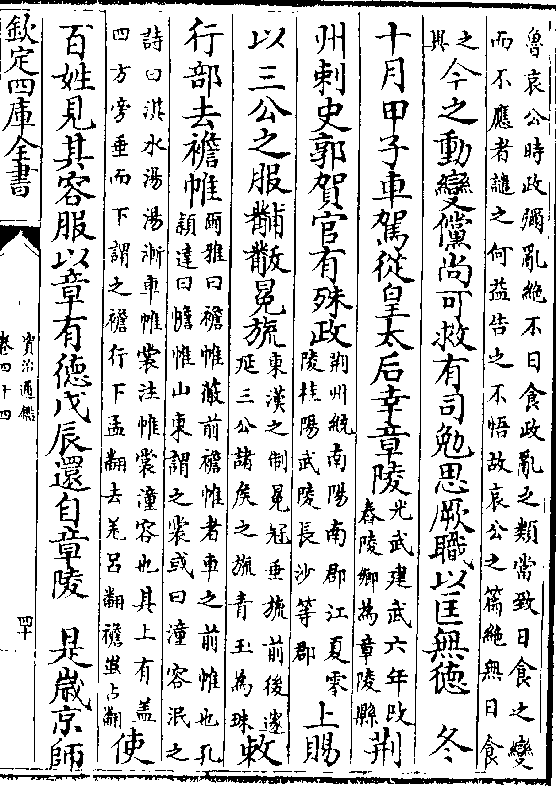 魯哀公時政彌亂絕不日食政亂之類當致日食之變
而不應者譴之何益告之不悟故哀公之篇絕無日食
之異今之動變儻尚可救有司勉思厥職以匡無德　冬
十月甲子車駕從皇太后幸章陵光武建武六年改舂陵鄉為章陵縣荆
州刺史郭賀官有殊政荆州統南陽南郡江夏零陵桂陽武陵長沙等郡上賜
以三公之服黼黻冕旒東漢之制冕冠垂旒前後邃延三公諸矦之旒青玉為珠敕
行部去襜帷爾雅曰襜帷蔽前襜帷者車之前帷也孔穎達曰幨帷山東謂之裳或曰潼容泯之
詩曰淇水湯湯漸車帷裳注帷裳潼容也其上有葢
四方旁垂而下謂之襜行下孟翻去羌呂翻襜蚩占翻使
百姓見其容服以章有德戊辰還自章陵　是歲京師
欽定四庫全書
資治通鑑
卷四十四
四十